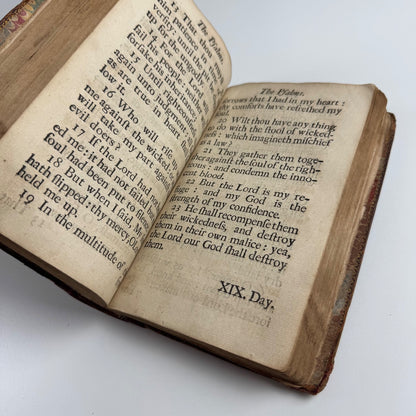 The Pſalms.
13 That thou
him patience in
verſity: until
up for the
14 For the Lord
fail his people
will he
his inheritance
15 Until
again unto
as are true in heart
low it.
16 Who will riſe
me againſt the
will take my part againſt
evil doers?
17 If the Lord had
ed me: it had not
ſoul had been
18 But when I ſaid, My
hath ſlipped: thy mercy, O
held me up.
19 In the multitude of
The Pſalms.
rrows that I had in my heart:
comforts have refreſhed my
20 Wilt thou have any thing
do with the ſtool of wicked-
which imagineth miſchief
a law?
21 They gather them toge-
againſt the ſoul of the righ-
and condemn the inno-
blood.
22 But the Lord is my re-
fuge: and my God is the
ſtrength of my confidence.
23 He ſhall recompenſe them
their wickedneſs, and deſtroy
them in their own malice: yea,
the Lord our God ſhall deſtroy
them.
XIX. Day.